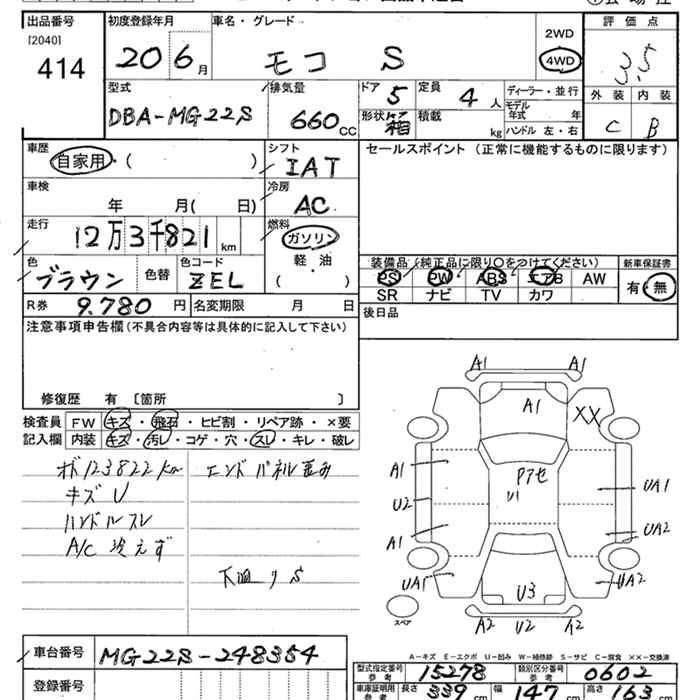 出品番号 初度登録年月 車名・グレード 2WD 評価点
[2040] 414 20 6月 モコ S 4WD 3.5
型式 排気量 ドア 5 定員 4人 ディーラー・並行 外装 内装
DBA-MG22S 660CC 形状 箱 積載 kg モデル年式 年 C B
ハンドル 左・右
車歴 シフト セールスポイント (正常に機能するものに限ります)
自家用・( ) IAT
車検 冷房
年 月( 日) AC
走行 燃料
12万3千821km ガソリン
色 色コード 軽・油 装備品 (純正品に限り〇をつけてください) 新車保証書
ブラウン 色替 ZEL ( ) PS PW ABS エアB AW 有・無
R券 9.780円 名変期限 月 日 SR ナビ TV カワ
注意事項申告欄(不具合内容等は具体的に記入して下さい) 後日品
修復歴 有 〔箇所 〕
検査員 FW キズ・飛石・ヒビ割・リペア跡・×要
記入欄 内装 キズ・汚レ・コゲ・穴・スレ・キレ・破レ
メーター123822km エンドパネル歪み
キズU
ハンドルスレ
A/C 冷えず
下廻りS
A1 A1
A1 XX
A1 Pアセ U1 UA1
U2
A1 UA2
UA1 U3 UA2
スペア A2 U2 A2
A-キズ E-エクボ U-凹み W-補修跡 S-サビ C-腐食 ××-交換済
車台番号 MG22S-248354
型式指定番号 参考 15278 類別区分番号 参考 0602
登録番号 車庫証明用 参考 長さ 339cm 幅 147cm 高さ 163cm